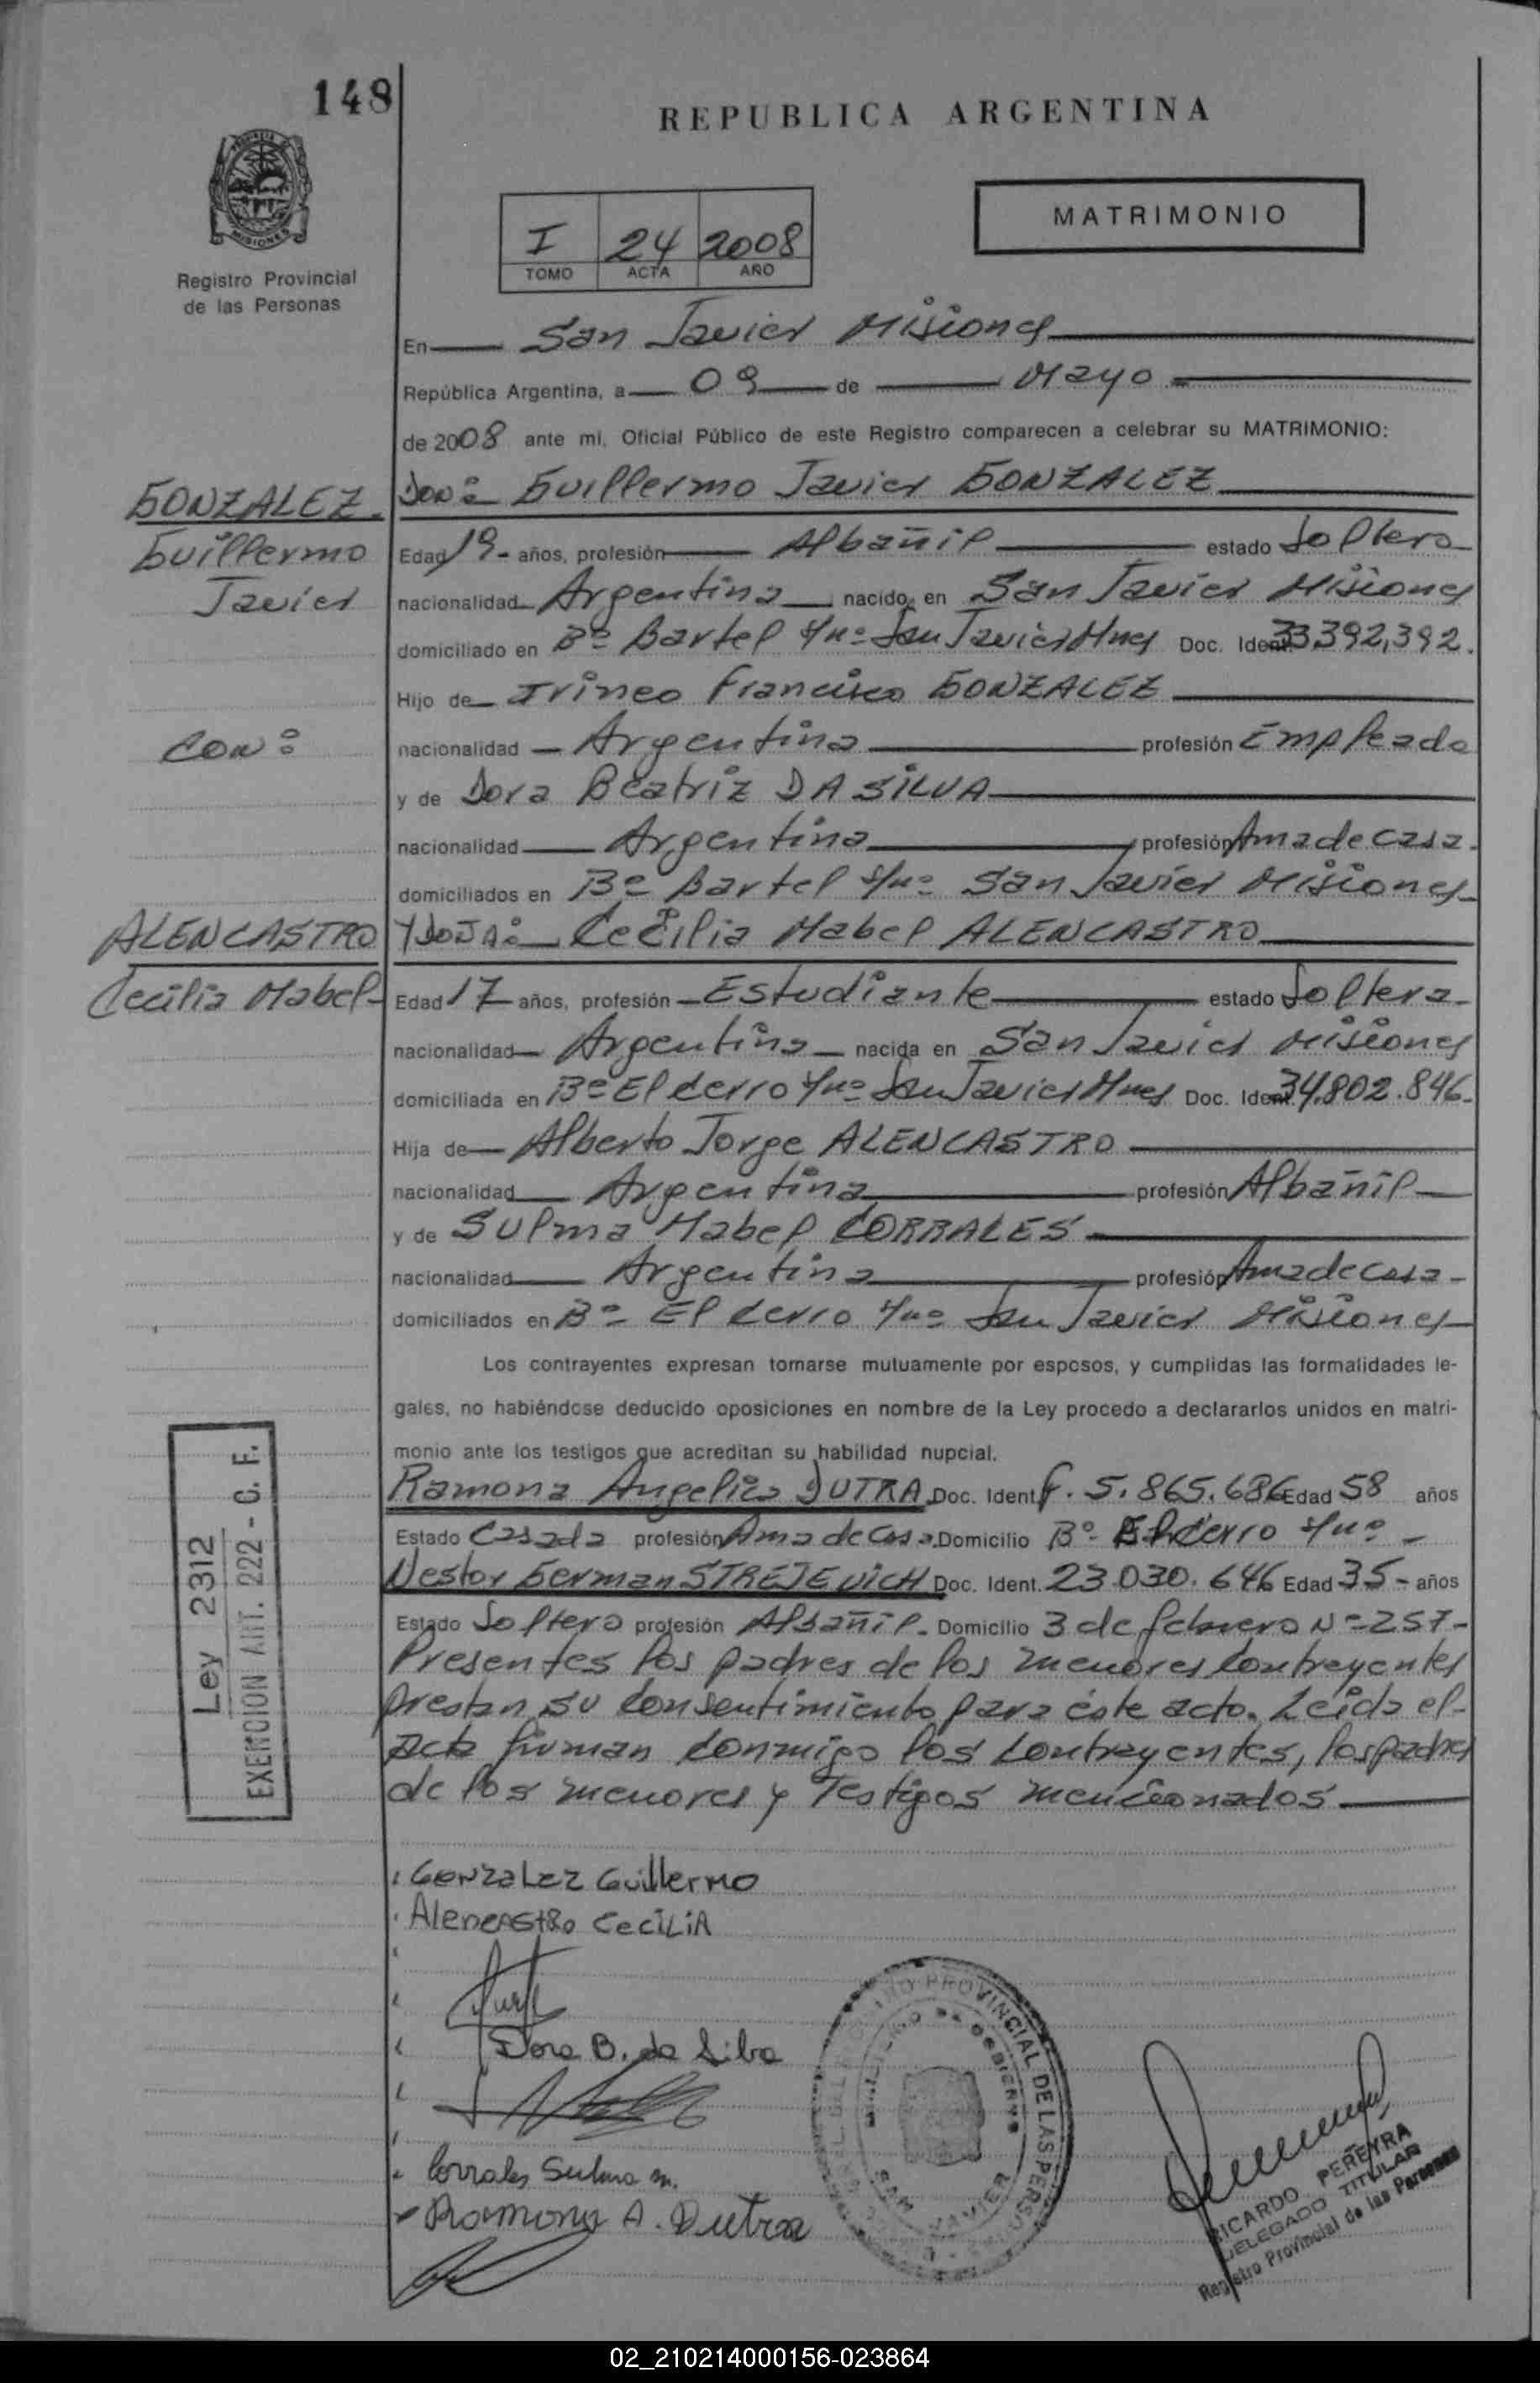 148
REPUBLICA ARGENTINA
MISIONES
Registro Provincial
de las Personas
MATRIMONIO
I 24 2008
TOMO ACTA AÑO
En San Javier Misiones
República Argentina, a 09 de Mayo
de 2008 ante mí, Oficial Público de este Registro comparecen a celebrar su MATRIMONIO:
GONZALEZ
Don: Guillermo Javier GONZALEZ
Guillermo
Edad 19 años, profesión Albañil estado Soltero
Javier
nacionalidad Argentina nacido en San Javier Misiones
domiciliado en Bº Bartel s/nº San Javier Mnes Doc. Ident. 33.392.392.
Hijo de Irineo Francisco GONZALEZ
con:
nacionalidad Argentina profesión Empleado
y de Dora Beatriz DA SILVA
nacionalidad Argentina profesión Ama de casa.
domiciliados en Bº Bartel s/nº San Javier Misiones
ALENCASTRO
Y DOÑA: Cecilia Mabel ALENCASTRO
Cecilia Mabel
Edad 17 años, profesión Estudiante estado Soltera
nacionalidad Argentina nacida en San Javier Misiones
domiciliada en Bº El Cerro s/nº San Javier Mnes Doc. Ident. 34.802.846.
Hija de Alberto Jorge ALENCASTRO
nacionalidad Argentina profesión Albañil
y de Sulma Mabel CORRALES
nacionalidad Argentina profesión Ama de casa
domiciliados en Bº El Cerro s/nº San Javier Misiones
Los contrayentes expresan tomarse mutuamente por esposos, y cumplidas las formalidades le-
gales, no habiéndose deducido oposiciones en nombre de la Ley procedo a declararlos unidos en matri-
monio ante los testigos que acreditan su habilidad nupcial.
Ramona Angelica DUTRA Doc. Ident. F. 5.865.686 Edad 58 años
Estado Casada profesión Ama de Casa. Domicilio Bº El Cerro s/nº
Nestor German STREJEVICH Doc. Ident. 23.030.646 Edad 35 años
Estado Soltero profesión Albañil. Domicilio 3 de febrero Nº 257
Presentes los padres de los menores Contrayentes
prestan su Consentimiento para éste acto. Leida el
acta firman Conmigo los Contrayentes, los padres
de los menores y Testigos mencionados
Ley 2312
EXENCION ART. 222 - C. F.
Gonzalez Guillermo
Alencastro Cecilia
Dora B. da Silva
Corrales Sulma m.
Ramona A. Dutra
REGISTRO PROVINCIAL DE LAS PERSONAS
MINISTERIO DE GOBIERNO
SAN JAVIER
RICARDO PEREYRA
DELEGADO TITULAR
Registro Provincial de las Personas
02_210214000156-023864